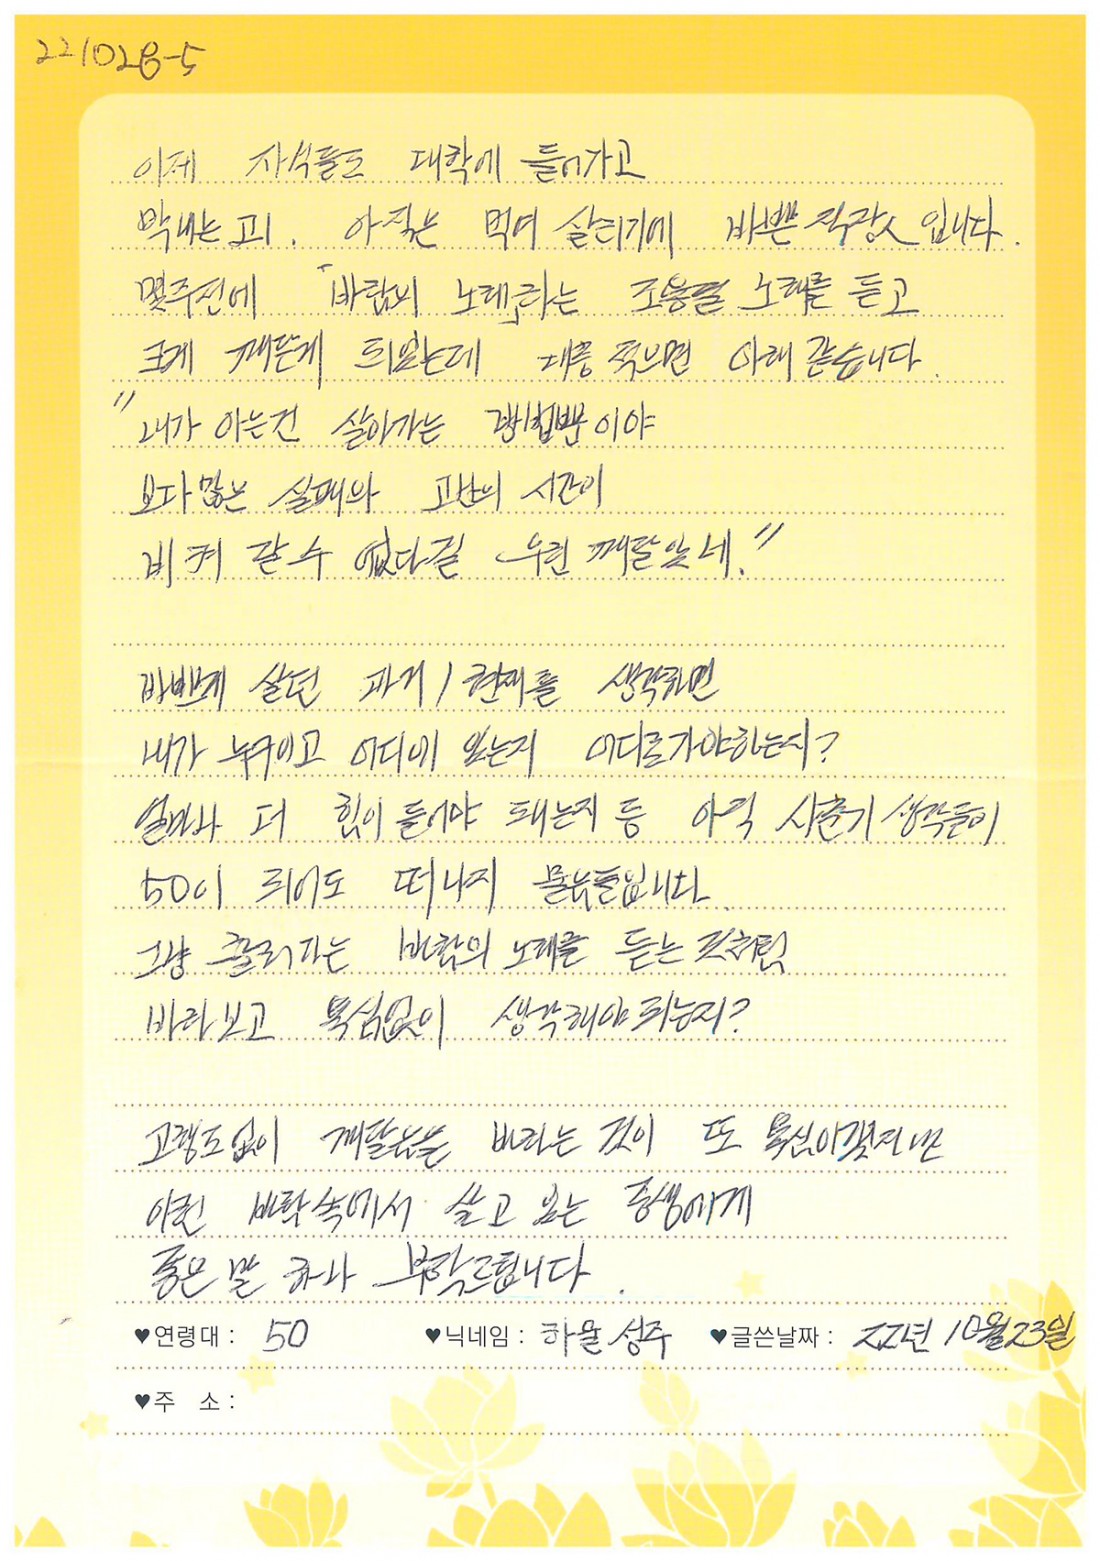 221028-5
이제 자식들도 대학에 들어가고
막내는 고1. 아직은 먹여 살리기에 바쁜 직장人 입니다.
몇주전에 「바람의 노래」라는 조용필 노래를 듣고
크게 깨닫게 되었는데 대충 적으면 아래 같습니다.
"내가 아는건 살아가는 방법뿐이야
보다많은 실패와 고난의 시간이
비켜 갈수 없다걸 우린 깨달았네."
바쁘게 살던 과거/현재를 생각하면
내가 누구이고 어디에 있는지 어디로가야하는지?
얼마나 더 힘이 들어야 되는지 등 아직 사춘기 생각들이
50이 되어도 떠나지 못합니다.
그냥 흘러가는 바람의 노래를 듣는 것처럼
바라보고 욕심없이 생각해야 되는지?
고행도없이 깨달음을 바라는 것이 또 욕심이겠지만
이런 바람속에서 살고 있는 중생에게
좋은 말 하나 부탁드립니다.
♥연령대 : 50 ♥닉네임 : 하율성주 ♥글쓴날짜 : 22년 10월23일
♥주 소 :